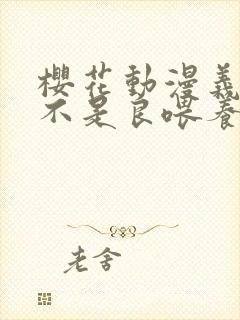 櫻花動漫義
不是良喂養
老舍